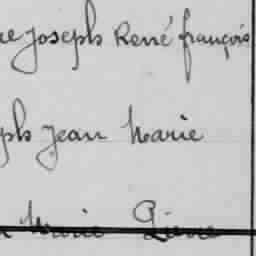 Joseph René françois
Jean Marie
Marie Pierre